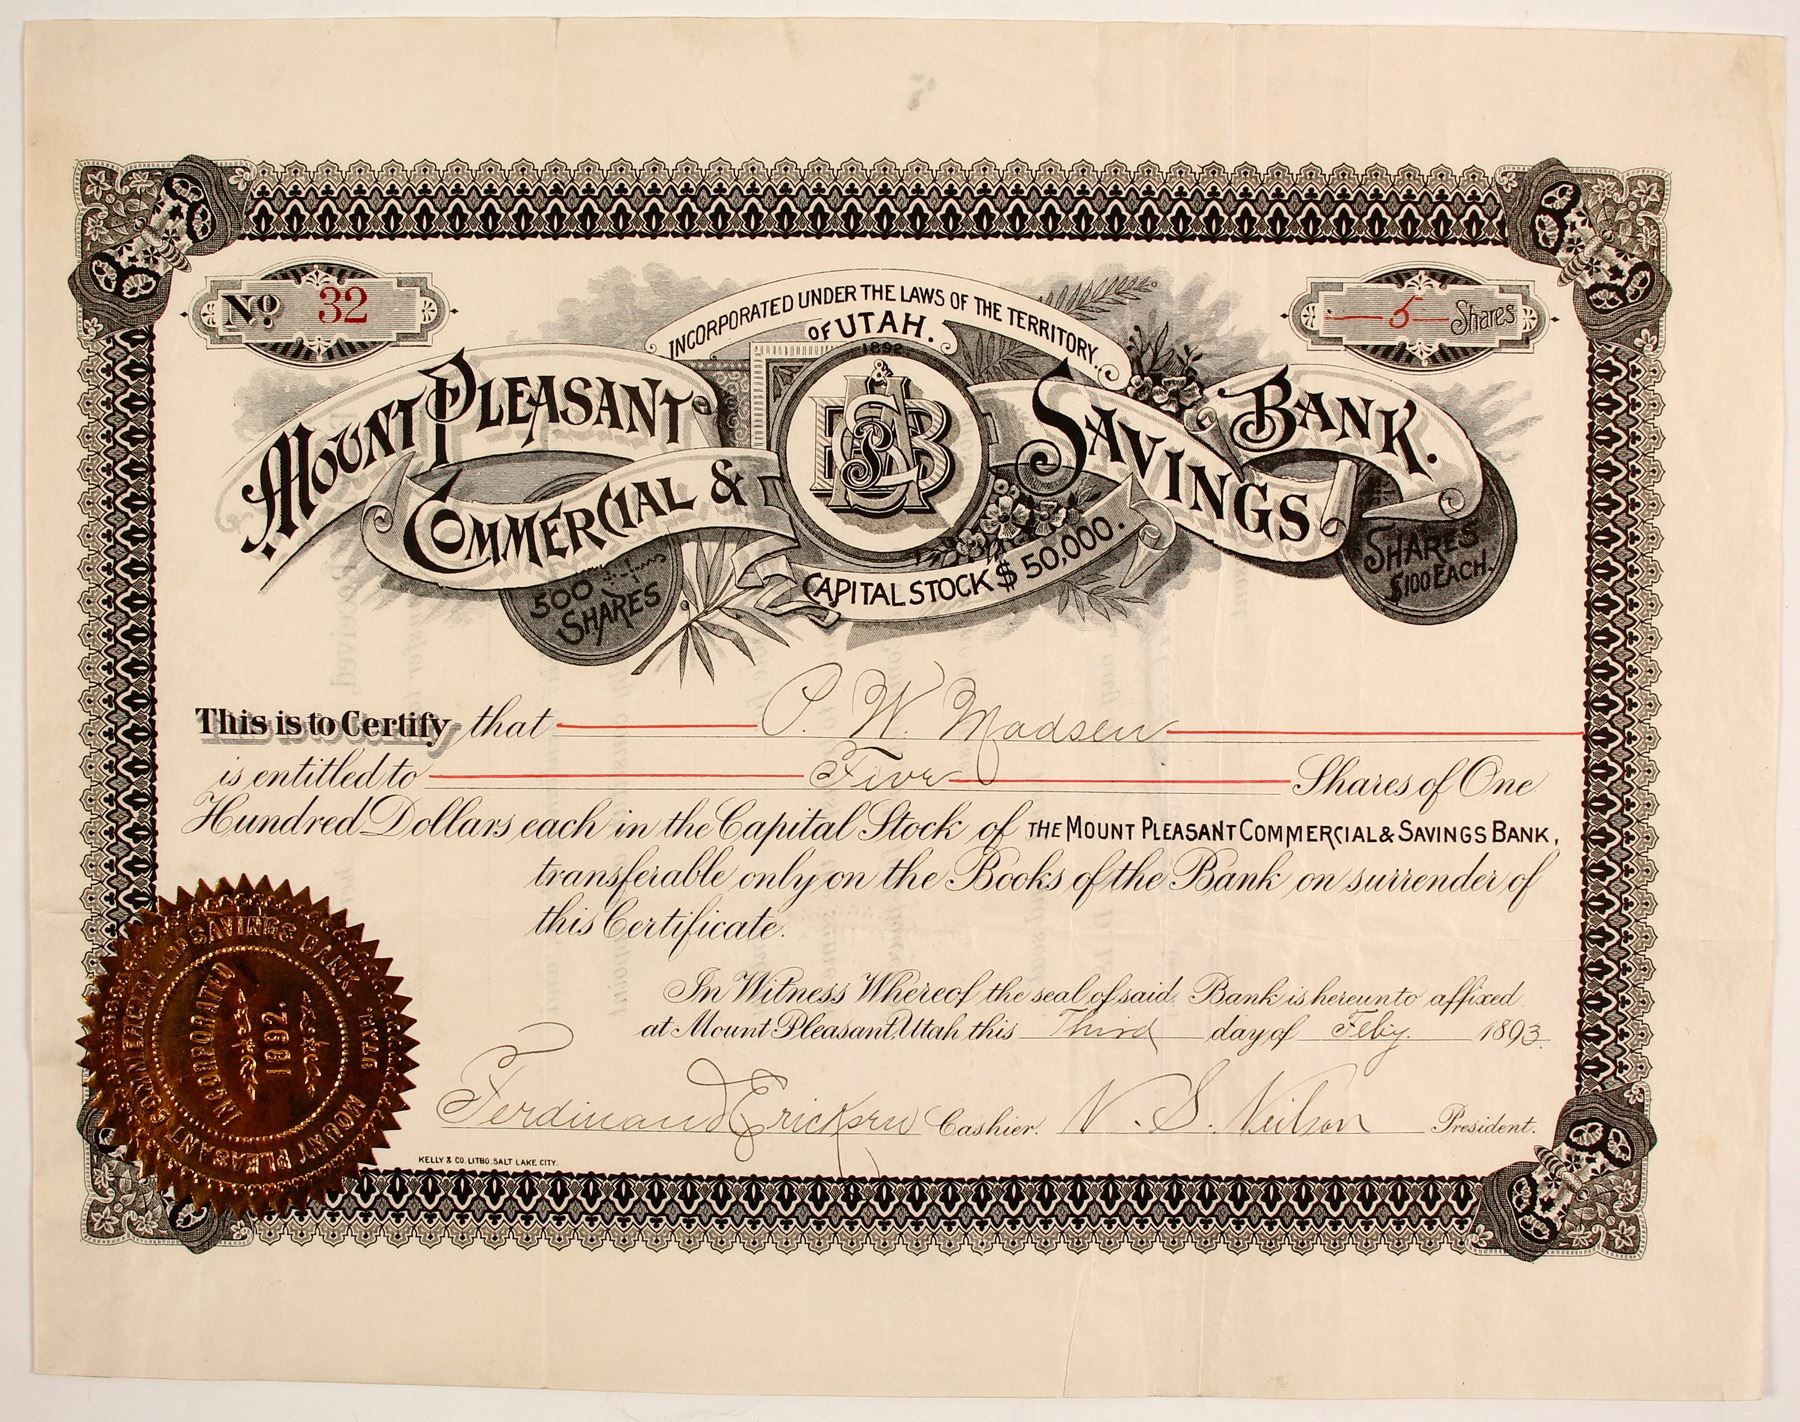 No. 32
5 Shares
INCORPORATED UNDER THE LAWS OF THE TERRITORY
OF UTAH.
1892
MOUNT PLEASANT
COMMERCIAL &
SAVINGS
BANK.
500
SHARES
CAPITAL STOCK $50,000.
SHARES
$100 EACH.
This is to Certify that P. W. Madsen
is entitled to Five Shares of One
Hundred Dollars each in the Capital Stock of THE MOUNT PLEASANT COMMERCIAL & SAVINGS BANK,
transferable only on the Books of the Bank on surrender of
this Certificate.
In Witness Whereof the seal of said Bank is hereunto affixed
at Mount Pleasant, Utah this Third day of Feby. 1893.
Ferdinand Ericksen Cashier. N. S. Neilson President.
KELLY & CO. LITHO. SALT LAKE CITY.
MOUNT PLEASANT COMMERCIAL AND SAVINGS BANK. UTAH
INCORPORATED
1892.